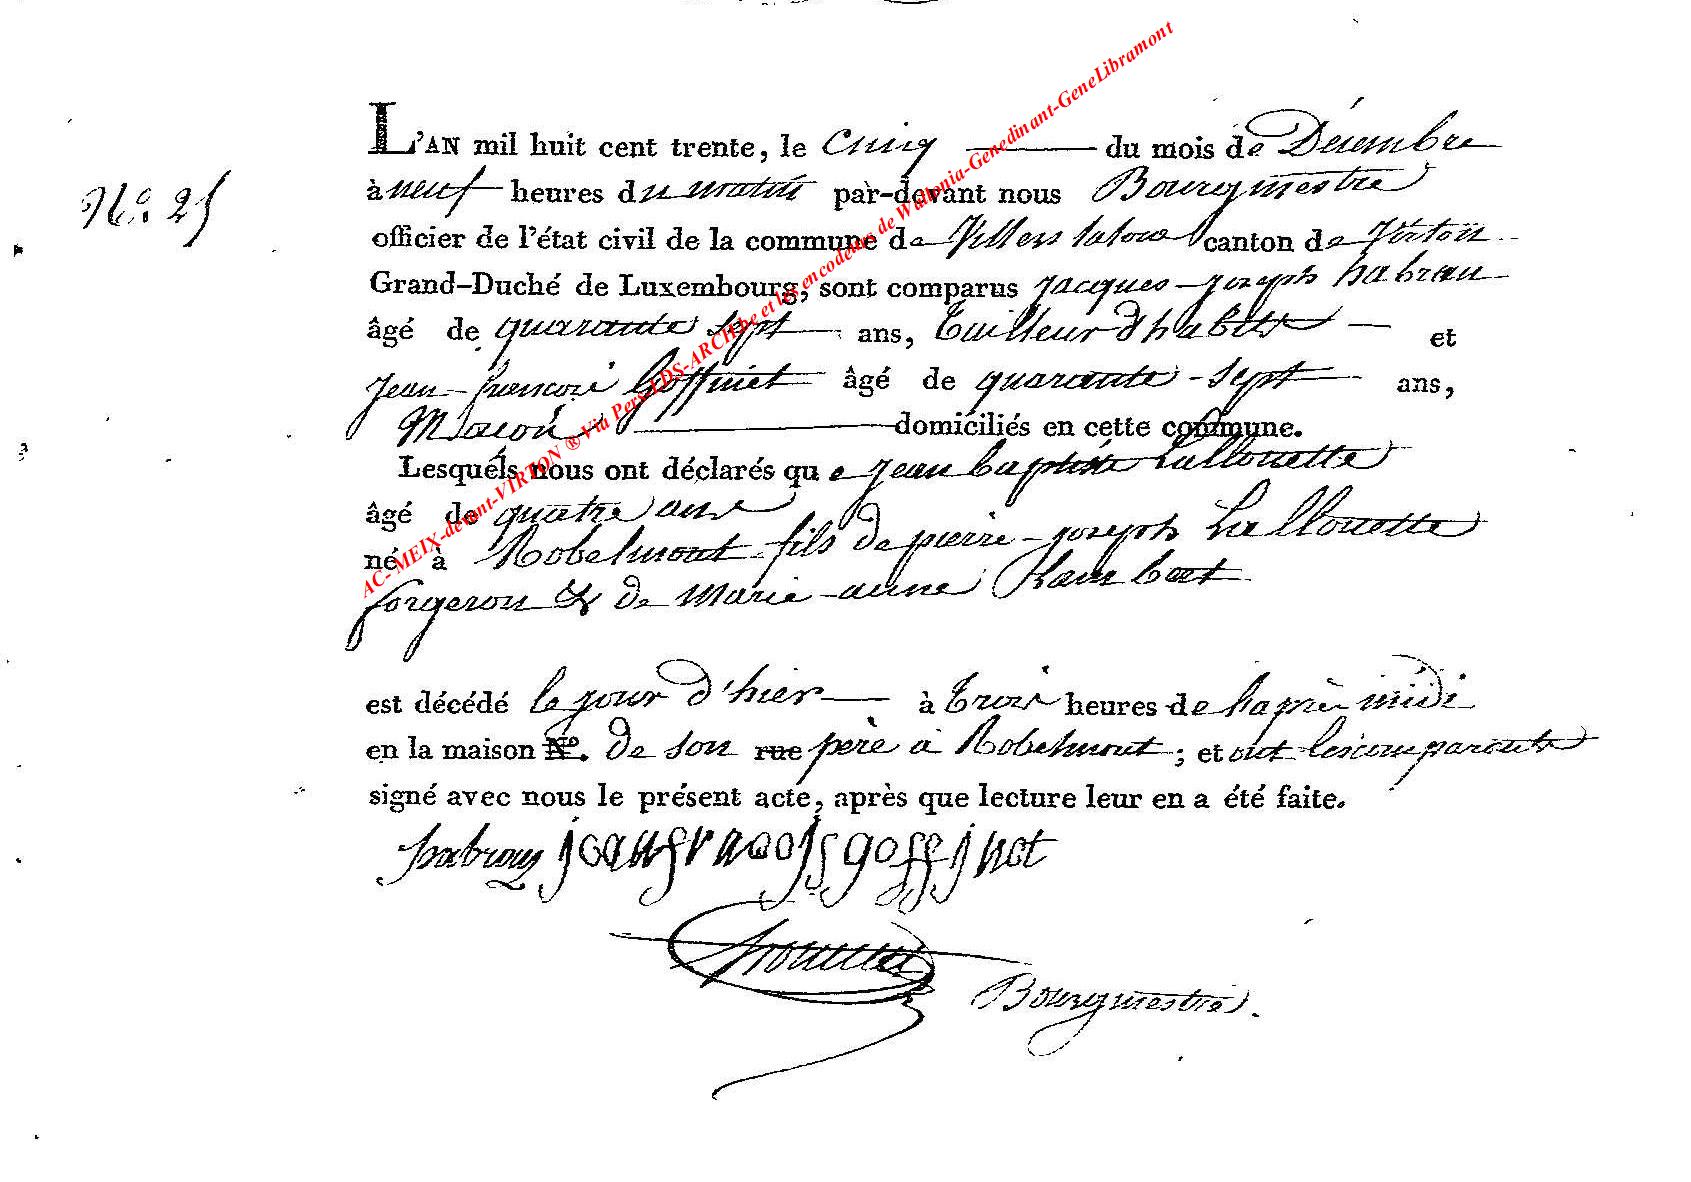 L'AN mil huit cent trente, le Cinq du mois de Décembre
N.o 25
à neuf heures du matin par-devant nous Bourgmestre
officier de l'état civil de la commune de Villers laloue canton de Virton
Grand-Duché de Luxembourg, sont comparus jacques-joseph habran
âgé de quarante sept ans, Tailleur d'habits et
jean-francois Goffinet âgé de quarante-sept ans,
Macon domiciliés en cette commune.
Lesquels nous ont déclarés que jean baptiste Lallouette
âgé de quatre ans
né à Robelmont fils de pierre-joseph Lallouette
forgeron & de Marie-anne Lambert
est décédé le jour d'hier à trois heures de laprès midi
en la maison N.o de son rue père à Robelmont ; et ont les comparants
signé avec nous le présent acte, après que lecture leur en a été faite.
habran jean francois goffinet
Bourgmestre.
AC-MEIX-devant-VIRTON ® Via Pers LDS-ARCH.be et les encodeurs de Wallonia-Genedinant-GeneLibramont